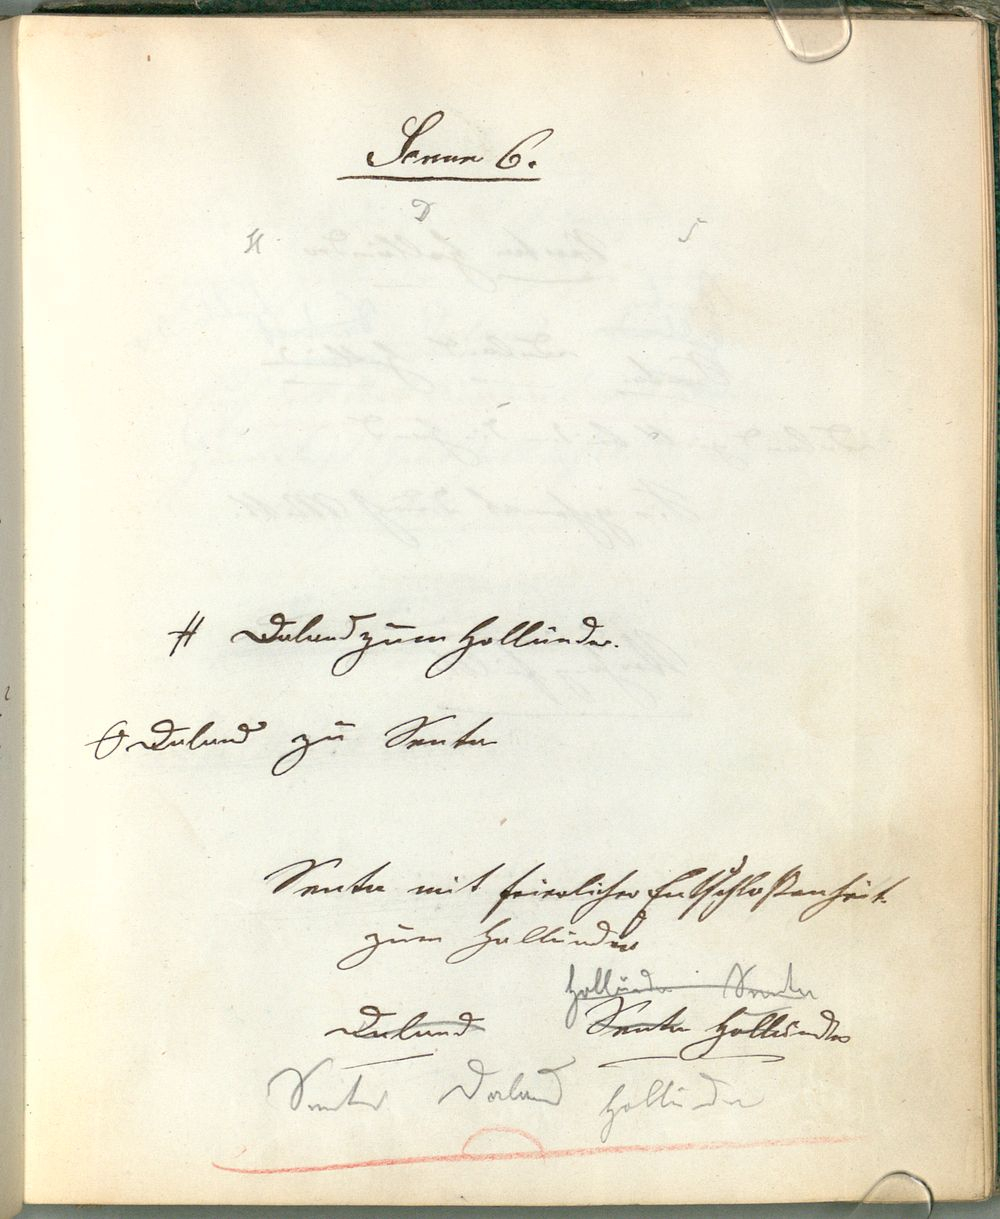 Scene 6.
D
H S
# Daland zum Holländer.
Daland zu Senta
Senta mit feierlicher Entschloßenheit
zum Holländer
Holländer Senta
Daland Senta Holländer
Senta Daland Holländer